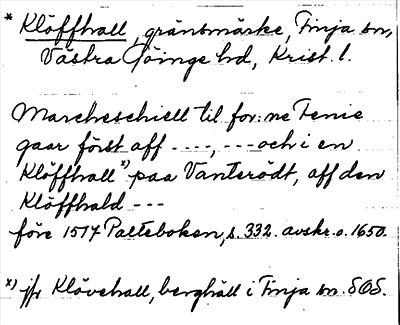 * Klöffhall, gränsmärke, Finja sn,
Västra Göinge hd, Krist. l.
Marcheschiell til for:ne Fenie
gaar först aff ----, --- och i en
Klöffhall x) paa Vanterödt, aff den
Klöffhald ---
före 1517 Palteboken, s. 332. avskr. o. 1650.
x) jfr Klövehall, berghäll i Finja sn. SOS.